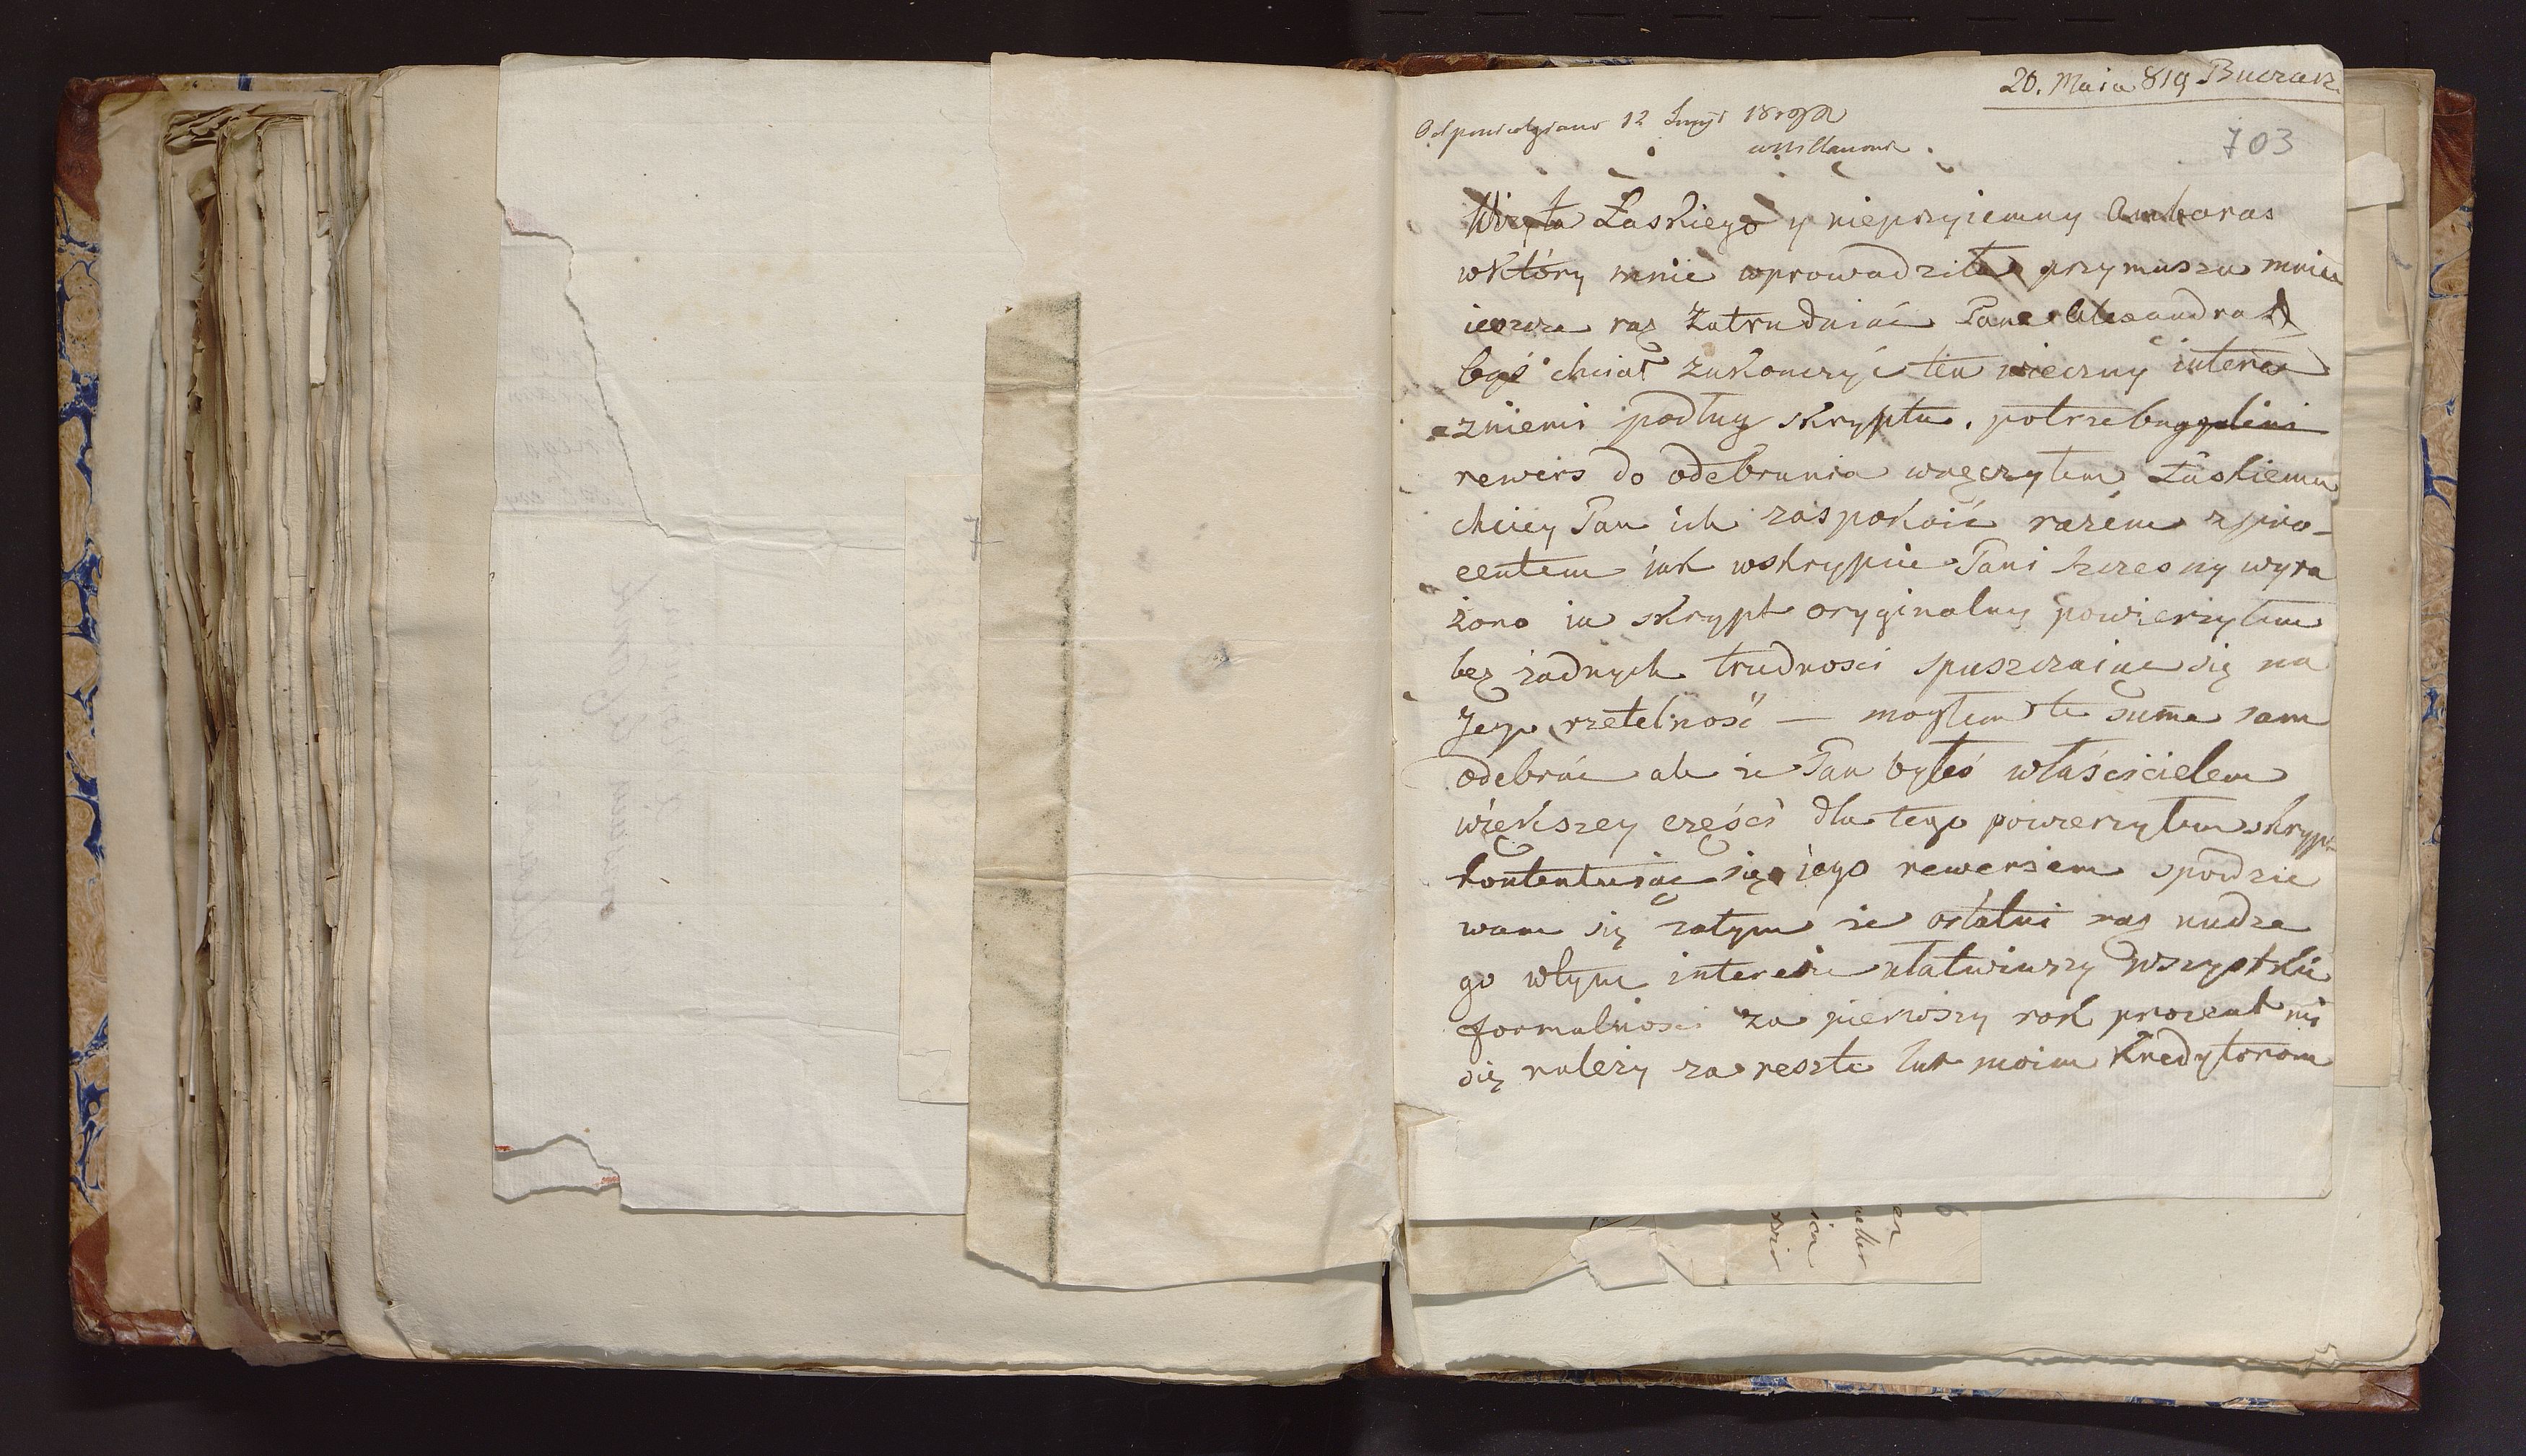 20. Maia 819 Buczacz
Odpowiedziano 12 Junÿi 1819 R
w Willanowie
703
Wizyta Łaskiego y nieprzyiemny Ambaras
wktóry mnie wprowadziła przymusza mnie
ieszcze raz zatrudniać Pana Alexandra A
byś chciał zakonczyć ten wieczny interes
zniemi podług skryptu. potrzebny
rewers do odebrania wręczyłem Łaskiemu
chciey Pan ich zaspokoić razem zpro-
centem jak wskrypcie Pani Szczesny wyra
żono ia skrypt oryginalny powierzyłem
bez żadnych trudnosci spuszczaiąc się na
Jego rzetelność — mogłem te sume sam
odebrać ale że Pan byłeś właścicielem
większey części dla tego powierzyłem skrypt
kontentuiąc się jego rewersem spodzie
wam się zatym że ostatni raz nudze
go wtym interesie ułatwiwszy wszystkie
formalności za pierwszy rok procent mi
się należy za reszte lat moim Kredytorom